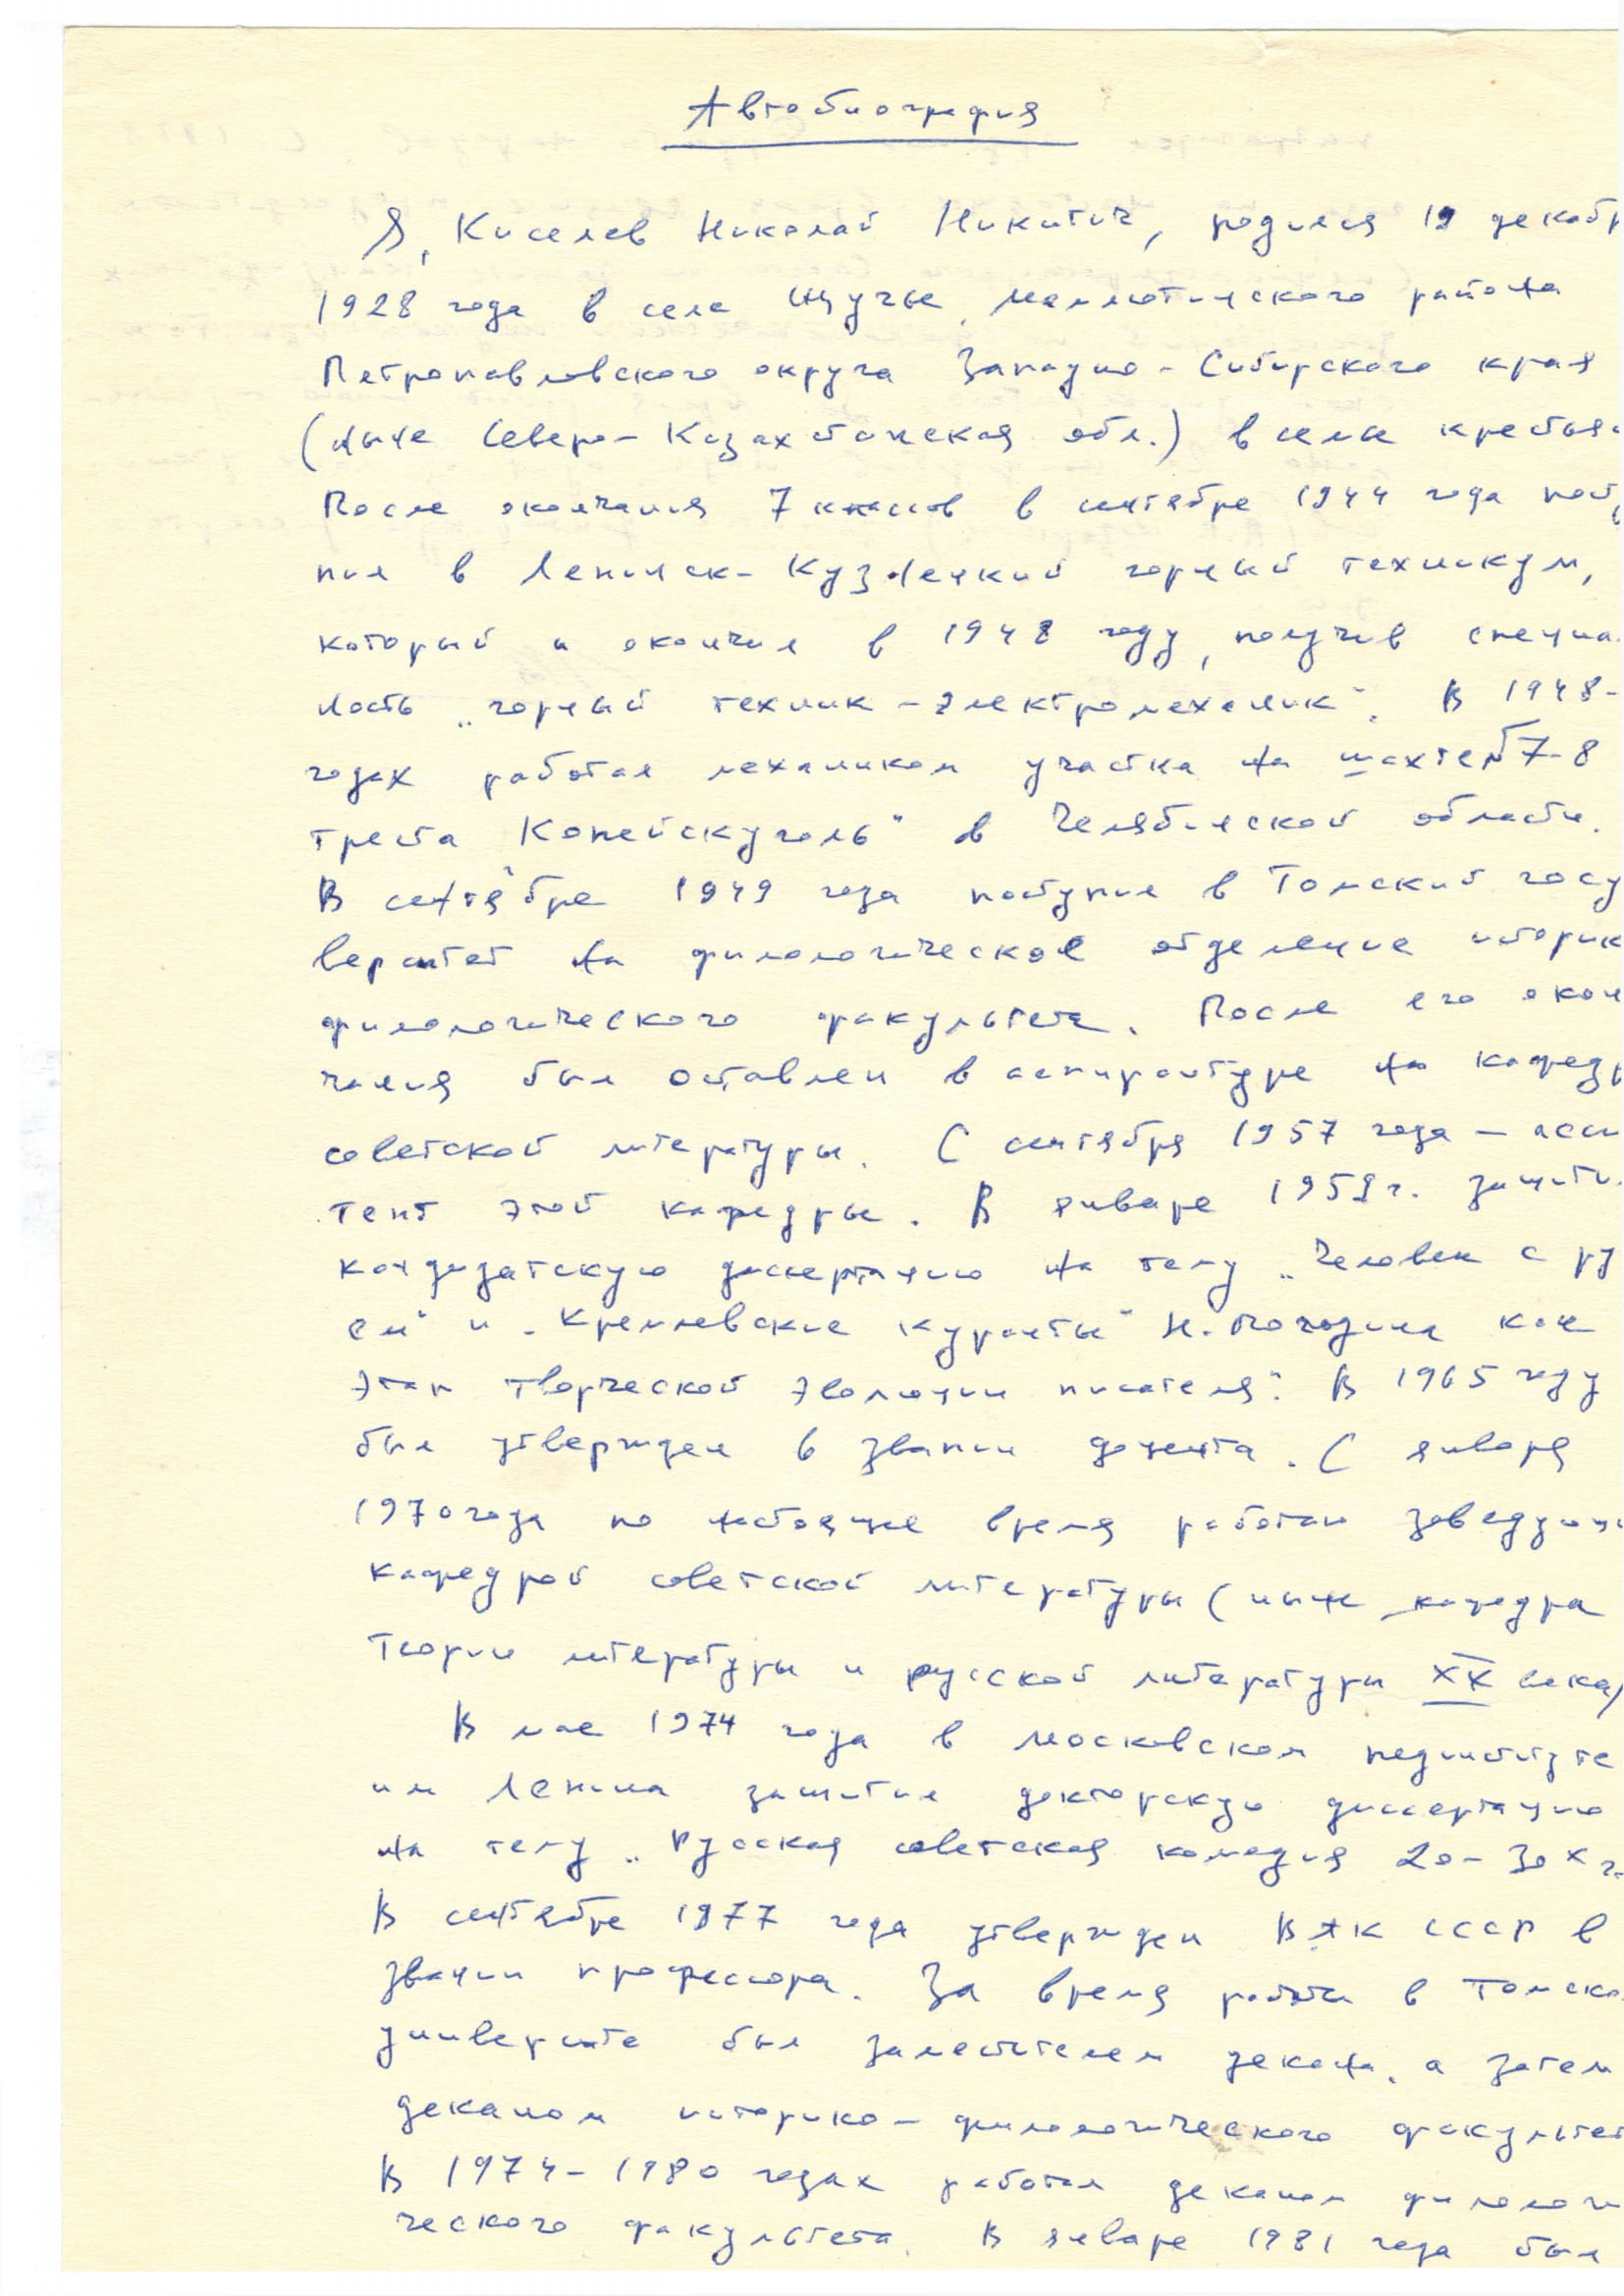 Автобиография
Я, Киселев Николай Никитич, родился 19 декабр
1928 года в селе Щучье, Мамлютинского района
Петропавловского округа Западно-Сибирского края
(ныне Северо-Казахстанская обл.) в семье крестья
После окончания 7 классов в сентябре 1944 года посту
пил в Ленинск-Кузнецкий горный техникум,
который и окончил в 1948 году, получив специа
ность „горный техник-электромеханик“. В 1948-
годах работал механиком участка на шахте № 7-8
треста „Копейскуголь“ в Челябинской области.
В сентябре 1949 года поступил в Томский госу
верситет на филологическое отделение историк
филологического факультета. После его окон
чания был оставлен в аспирантуре на кафедр
советской литературы. С сентября 1957 года – асси
тент этой кафедры. В январе 1959 г. защити
кандидатскую диссертацию на тему „Человек с ру
ем“ и „Кремлевские куранты“ Н. Погодина как
этап творческой эволюции писателя“. В 1965 году
был утвержден в звании доцента. С января
1970 года по настоящее время работаю заведующ
кафедрой советской литературы (ныне кафедра
теории литературы и русской литературы XX века)
В мае 1974 года в Московском пединституте
им Ленина защитил докторскую диссертацию
на тему „Русская советская комедия 20-30х г.
В сентябре 1977 года утвержден ВАК СССР в
звании профессора. За время работы в Томско
университе был заместителем декана, а затем
деканом историко-филологического факультет
В 1974-1980 годах работал деканом филологи
ческого факультета. В январе 1981 года был